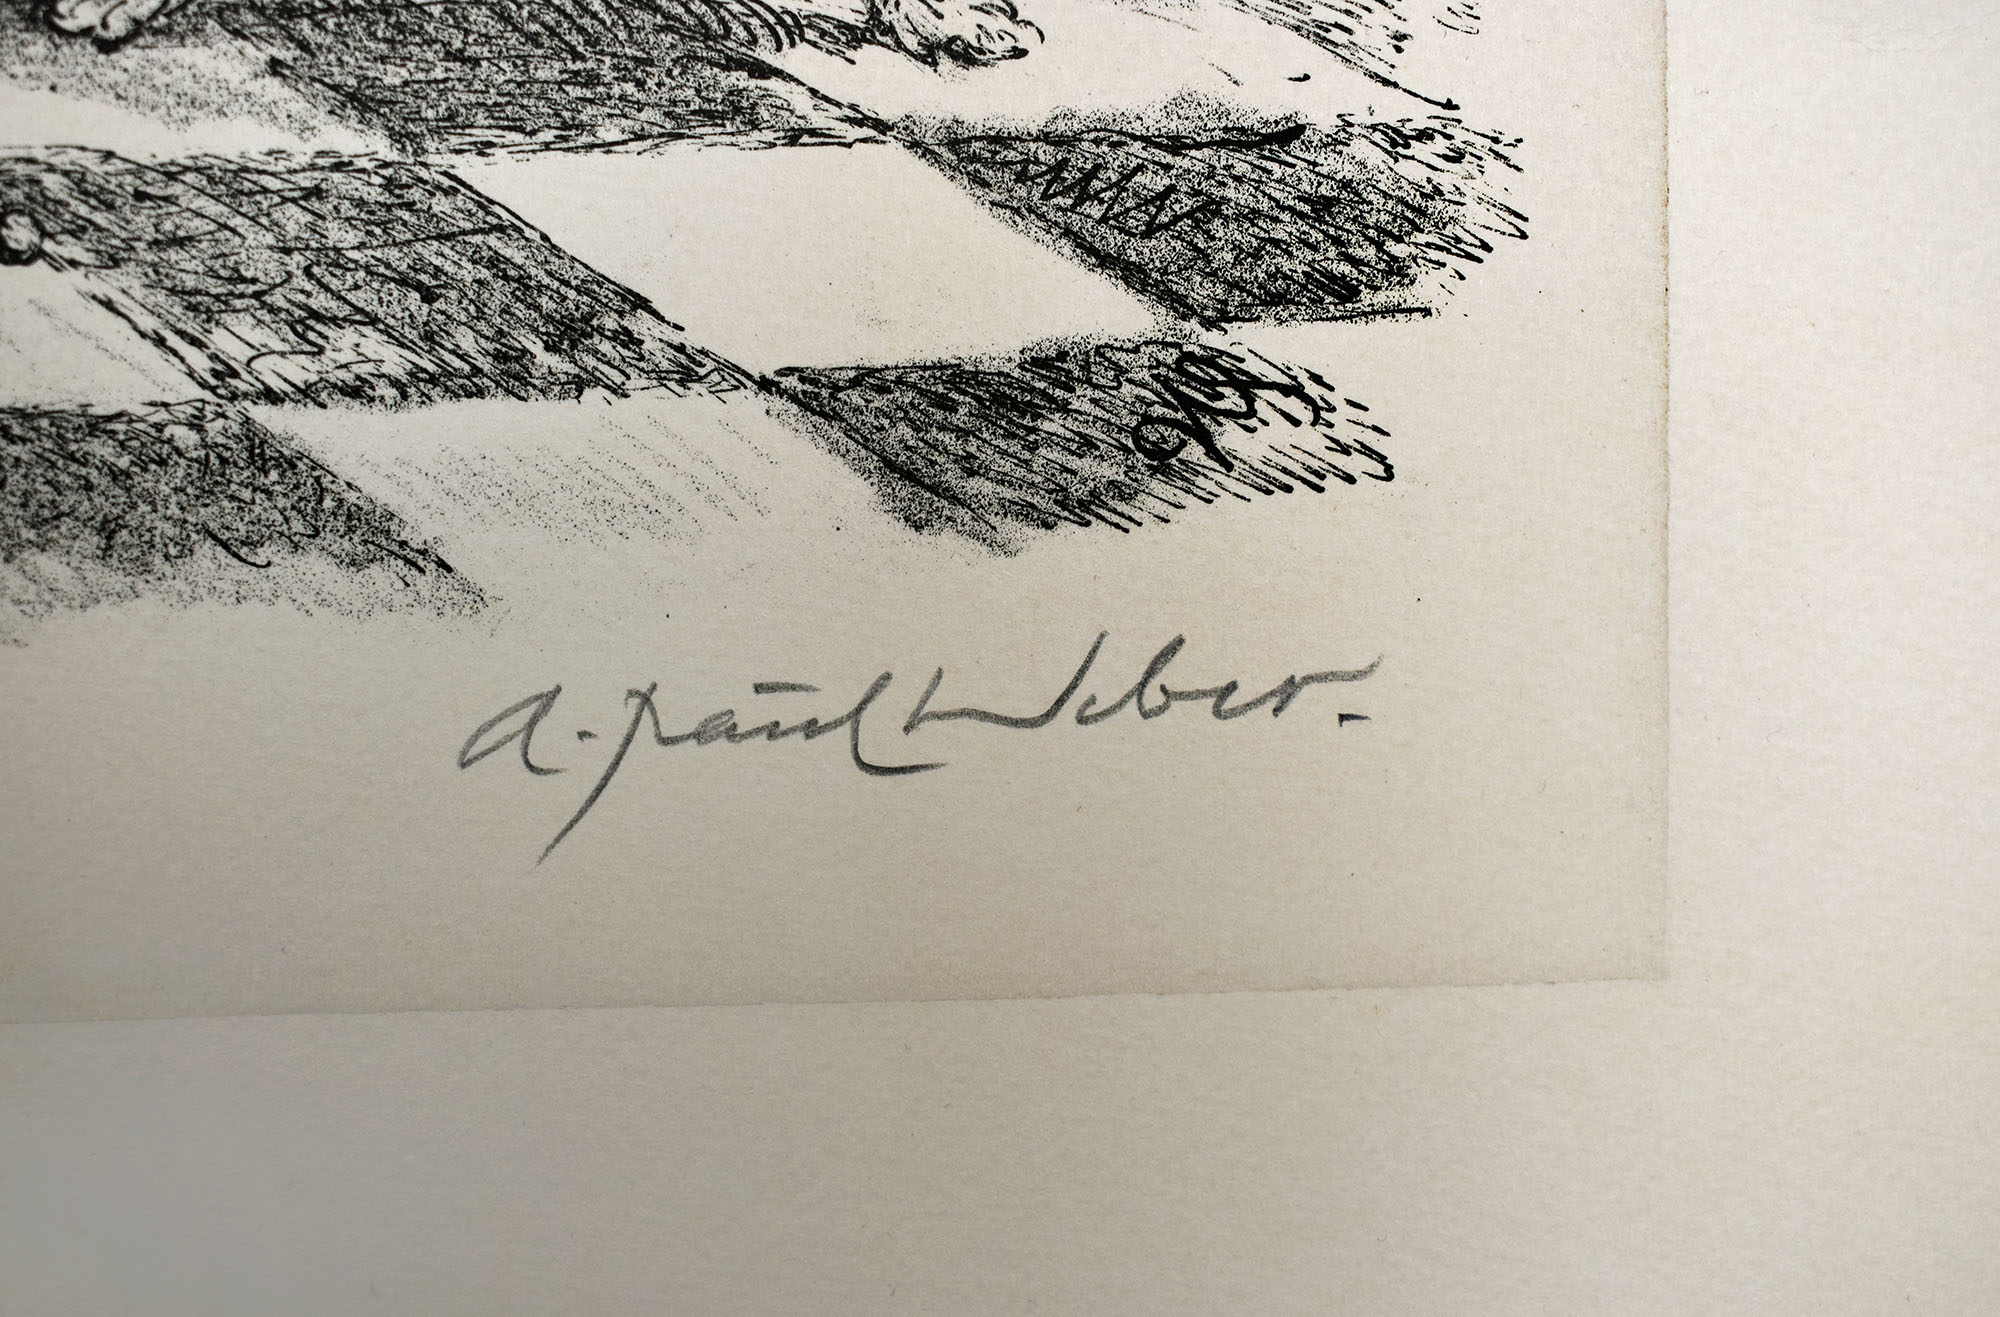 a. Paul Weber.